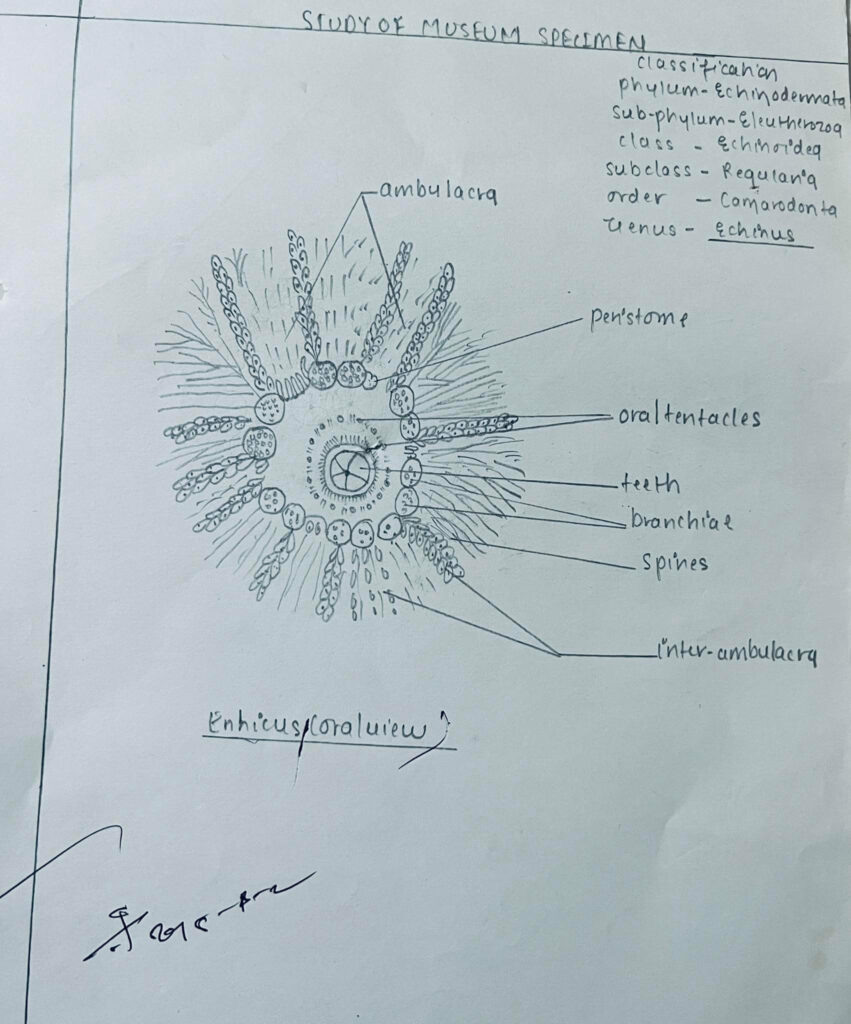 STUDY OF MUSEUM SPECIMEN
classification
phylum-Echinodermata
sub-phylum-Eleutherozoa
class - Echinoidea
subclass - Regularia
order - Camarodonta
Genus - Echinus
ambulacra
peristome
oral tentacles
teeth
branchiae
spines
inter-ambulacra
Enhicus (oral view)